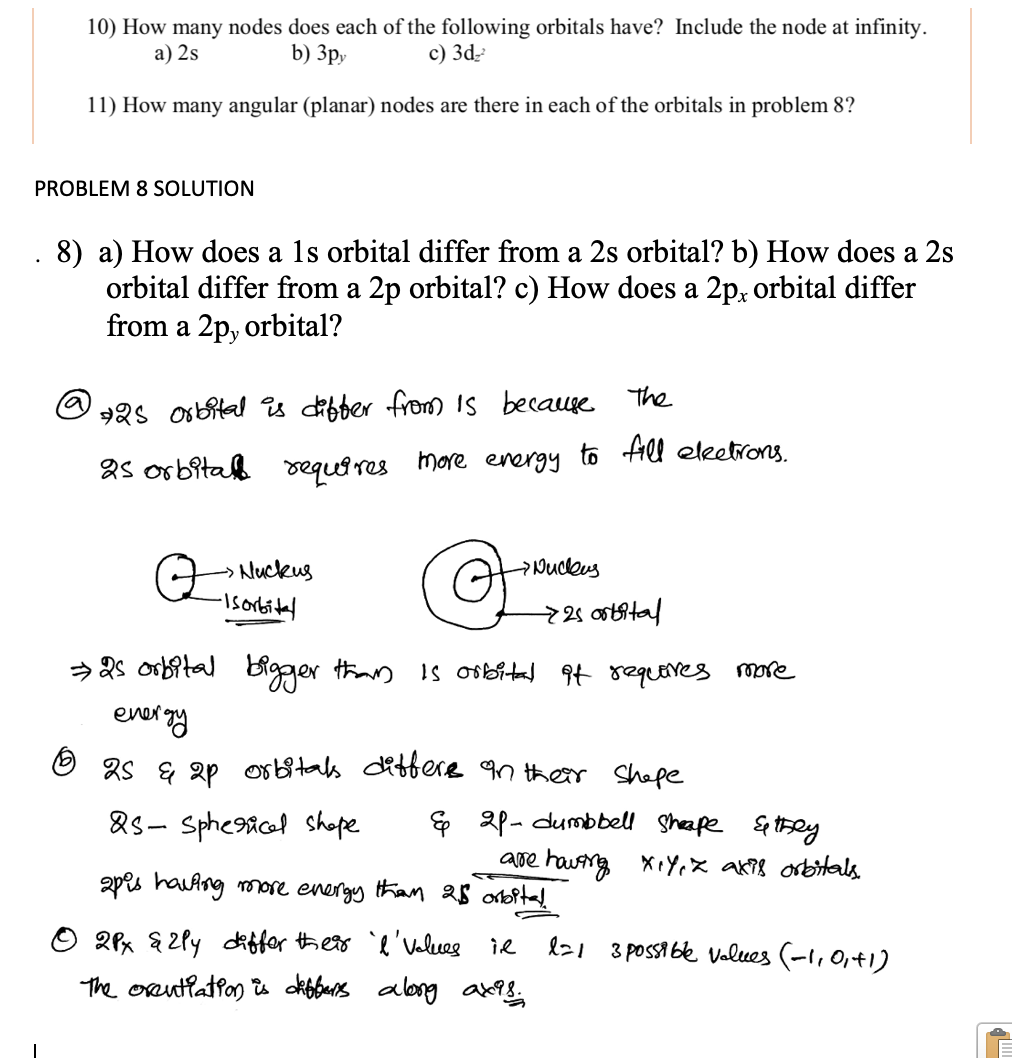 10) How many nodes does each of the following orbitals have? Include the node at infinity.
a) 2s b) 3py c) 3dz²
11) How many angular (planar) nodes are there in each of the orbitals in problem 8?
PROBLEM 8 SOLUTION
. 8) a) How does a 1s orbital differ from a 2s orbital? b) How does a 2s
orbital differ from a 2p orbital? c) How does a 2px orbital differ
from a 2py orbital?
ⓐ →2s orbital is differ from 1s because The
2s orbital requires more energy to fill electrons.
→ Nucleus
1s orbital
→ Nucleus
→ 2s orbital
⇒ 2s orbital bigger than 1s orbital it requires more
energy
ⓑ 2s & 2p orbitals differe in their shape
2s – spherical shape & 2p – dumbbell shape & they
are having x,y,z axis orbitals.
2p is having more energy than 2s orbital.
ⓒ 2Px & 2Py differ their 'l' values ie l=1 3 possible values (-1, 0, +1)
The is differs along axis.